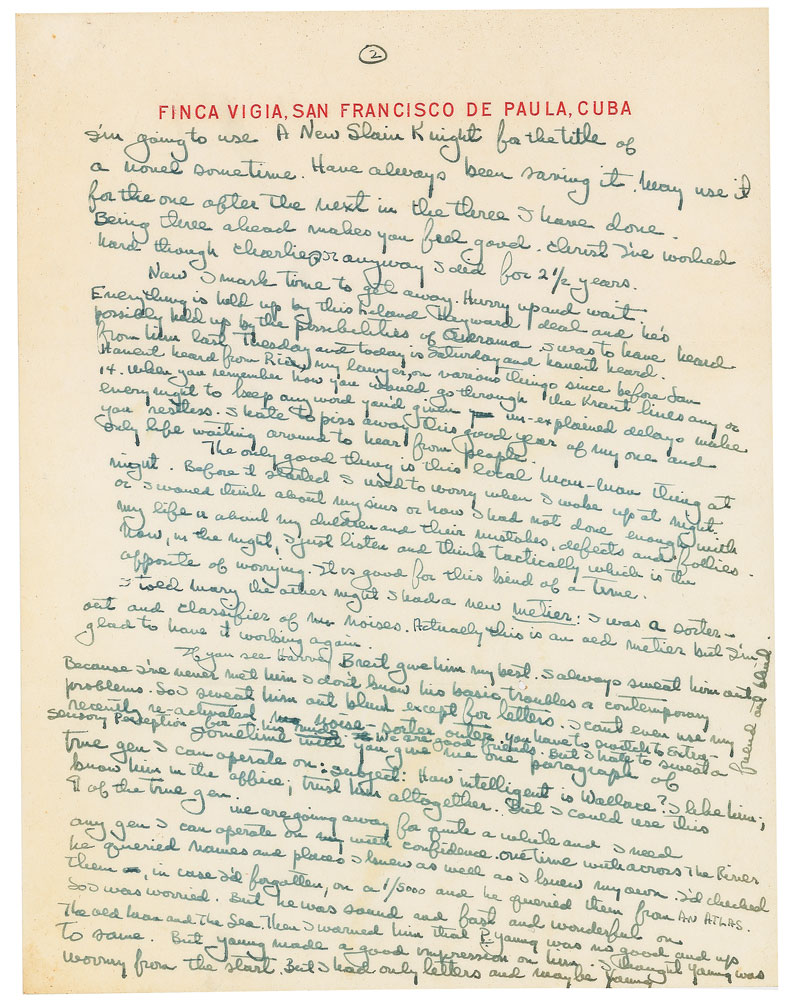 2
FINCA VIGIA, SAN FRANCISCO DE PAULA, CUBA
I'm going to use A New Slain Knight for the title of
a novel sometime. Have always been saving it. May use it
for the one after the next in the three I have done.
Being three ahead makes you feel good. Christ I've worked
hard though Charlie, or anyway I did for 2 1/2 years.
Now I mark time to get away. Hurry up and wait.
Everything is held up by this Leland Hayward deal and he's
possibly held up by the possibilities of Cinerama. I was to have heard
from him last Tuesday and today is Saturday and havent heard.
Havent heard from Rice, my lawyer, on various things since before Jan
14. When you remember how you would go through the Kraut lines any or
every night to keep any word you'd given un-explained delays make
you restless. I hate to piss away this good year of my one and
only life waiting around to hear from people.
The only good thing is this local Mau-Mau thing at
night. Before it started I used to worry when I woke up at night
or I would think about my sins or how I had not done enough with
my life or about my children and their mistakes, defects and follies.
Now, in the night, I just listen and think tactically which is the
opposite of worrying. It is good for this kind of a time.
I told Mary the other night I had a new metier: I was a sorter-
out and classifier of noises. Actually this is an old metier but I'm
glad to have it working again.
If you see Harvey Breit give him my best. I always sweat him out
Because I've never met him I don't know his basic troubles or contemporary
problems. So I sweat him out blind except for letters. I cant even use my
recently re-activated noise-sorter outer. You have to switch to Extra-
Sensory Perception for his We are good friends. But I hate to sweat a
friend out blind.
Sometime will you give me one paragraph of
true gen I can operate on: subject: How intelligent is Wallace? I like him;
know him in the office; trust him altogether. But I could use this
¶ of the true gen.
We are going away for quite a while and I need
any gen I can operate on with confidence. One time with Across The River
he queried names and places I knew as well as I knew my own. I'd checked
them, in case I'd forgotten, on a 1/5000 and he queried them from AN ATLAS.
So I was worried. But he was sound and fast and wonderful on
The Old Man and The Sea. Then I warned him that P. Young was no good and up
to same. But Young made a good impression on him. I thought Young was
wormy from the start. But I had only letters and maybe Young